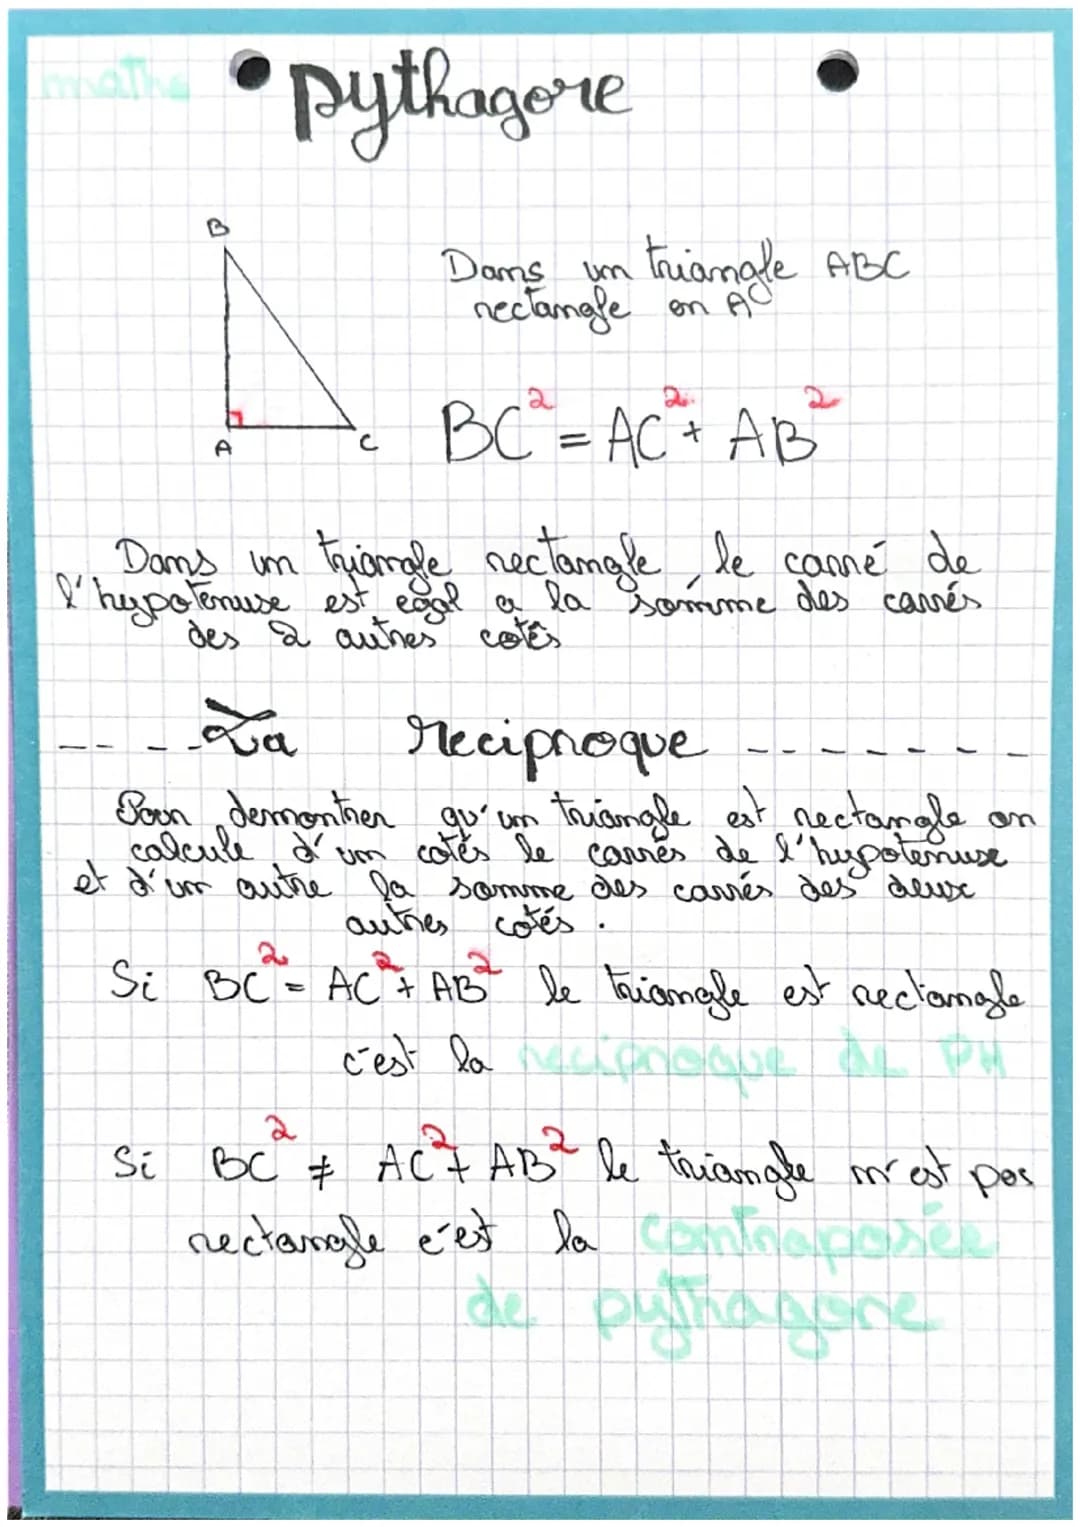 maths
pythagore
B
A
C
Dans un triangle ABC
rectangle en A
BC² = AC² + AB²
Dans un triangle rectangle, le carré de
l'hypotenuse est egal a la somme des carrés
des 2 autres cotês
La reciproque
Pour demontrer qu'un triangle est rectangle on
calcule d'un cotés le carrés de l'hypotenuse
et d'un autre la somme des carrés des deux
autres cotés.
Si BC² = AC² + AB² le triangle est rectangle
c'est la reciproque de PH
Si BC² ≠ AC² + AB² le triangle n'est pas
rectangle c'est la contraposée
de pythagore